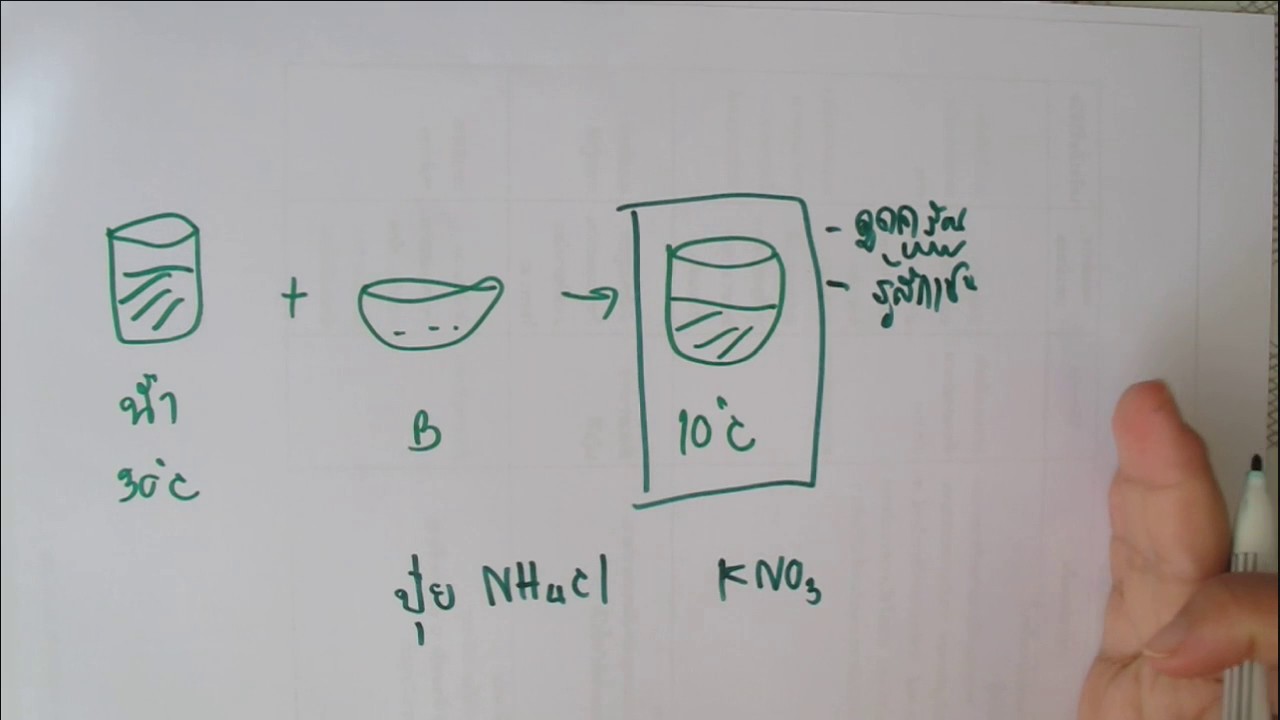 +
→
- ดูดความร้อน
- รู้สึกเย็น
น้ำ
B
10°C
30°C
ปุ๋ย NH₄Cl
KNO₃